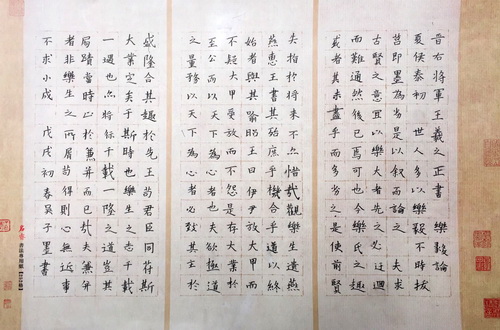 晉右將軍王羲之正書 樂毅論
夏侯泰初 世人多以樂毅不時拔
莒即墨為劣是以叙而論之 夫求
古賢之意宜以樂大者先之必迂迴
而難通然後已焉可也今樂氏之趣
或者其未盡乎而多劣之是使前賢
失指於將來不亦惜哉觀樂生遺
燕惠王書其殆庶乎機合乎道以終
始者與其喻昭王曰伊尹放大甲而
不疑大甲受放而不怨是存大業於
至公而以天下為心者也夫欲極道
之量務以天下為心者必致其主於
盛隆合其趣於先王苟君臣同符斯
大業定矣于斯時也樂生之志千載
一遇也亦將行千載一隆之道豈其
局蹟當時止於兼并而已哉夫兼并
者非樂生之所屑苟得則心無近事
不求小成 戊戌初春吳子墨書